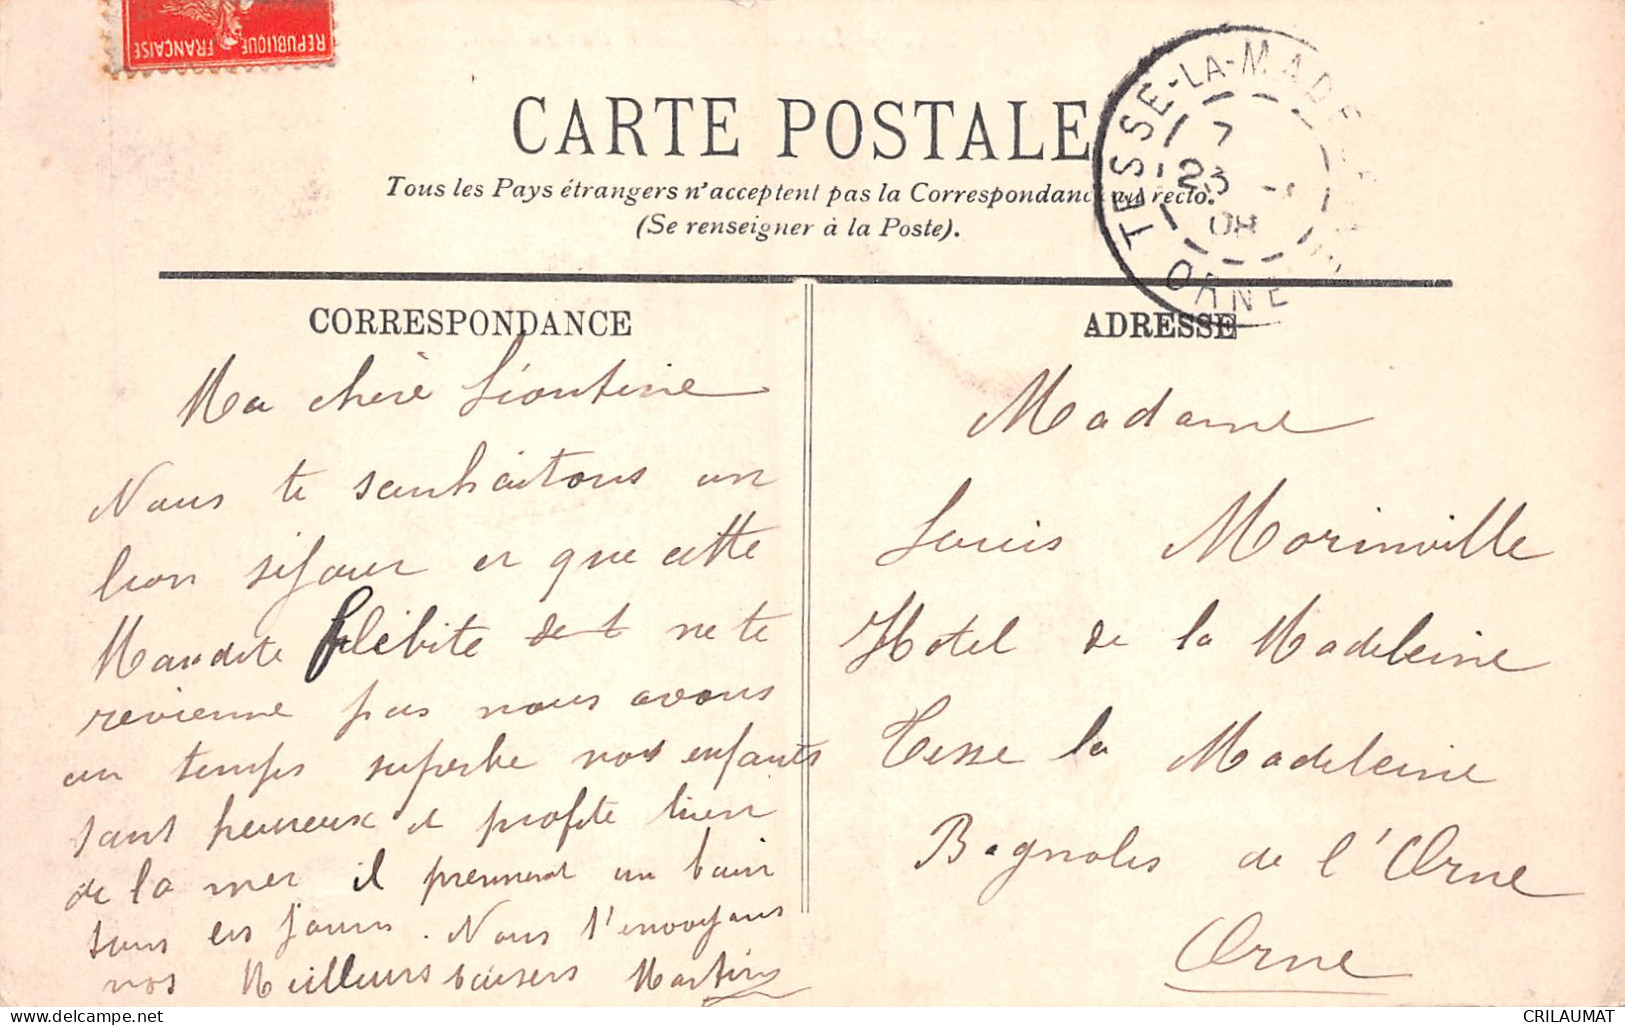 REPUBLIQUE FRANÇAISE
CARTE POSTALE
Tous les Pays étrangers n'acceptent pas la Correspondance au recto.
(Se renseigner à la Poste).
TESSE-LA-MADE
7
23
08
ORNE
CORRESPONDANCE
Ma chère Léontine
Nous te souhaitons un
bon séjour et que cette
Maudite flébite ne te
revienne pas nous avons
un temps superbe nos enfants
sont heureux et profite bien
de la mer il prennent un bain
tous les jours. Nous t'envoyons
nos Meilleurs baisers Martin
ADRESSE
Madame
Louis Morinville
Hotel de la Madeleine
Tesse la Madeleine
Bagnoles de l'Orne
Orne
CRILAUMAT